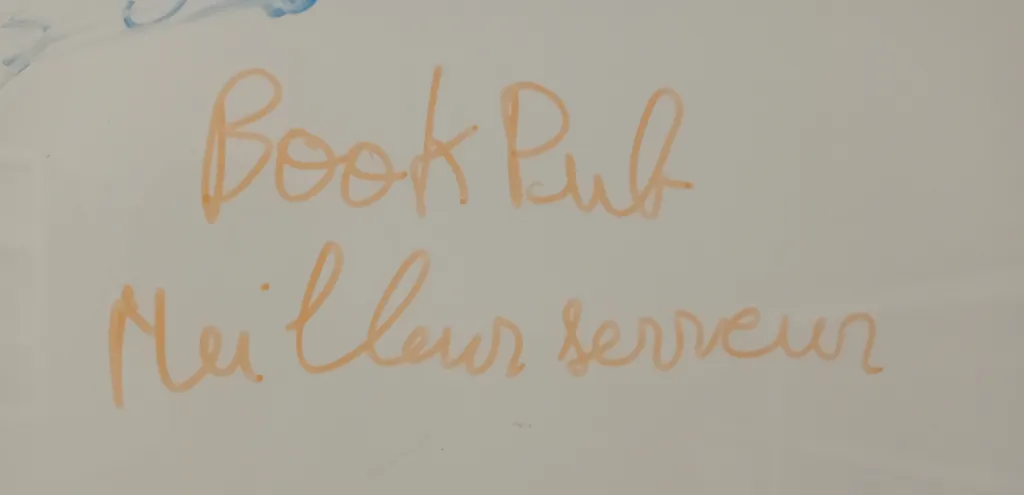 Book Pub
Meilleur serveur